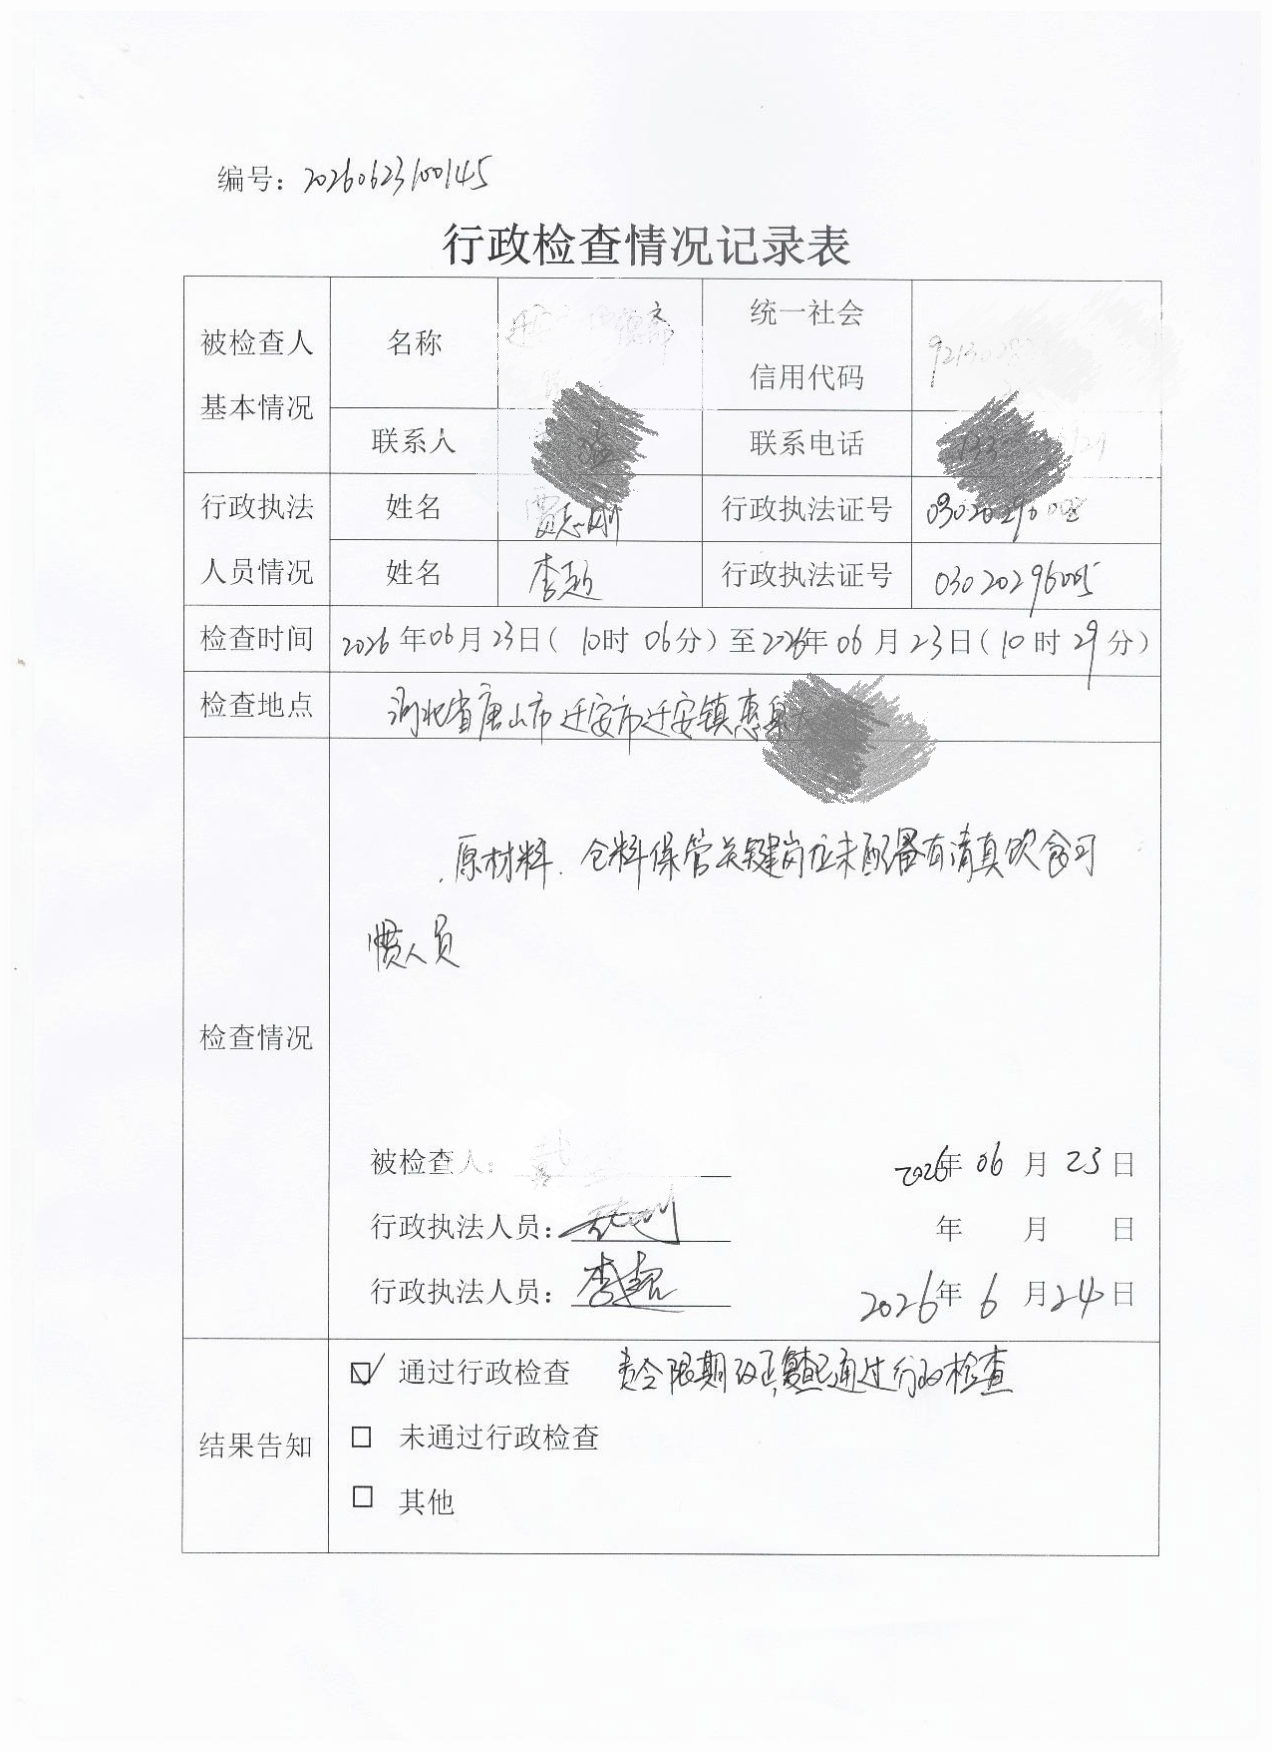 编号：20260623100145
行政检查情况记录表
被检查人基本情况 名称 统一社会信用代码
联系人 联系电话
行政执法人员情况 姓名 贾志刚 行政执法证号
姓名 李超 行政执法证号 03020296005
检查时间 2026年06月23日（10时06分）至2026年06月23日（10时29分）
检查地点 河北省唐山市迁安市迁安镇惠泉
检查情况
原材料、仓料保管关键岗位未配备有清真饮食习
惯人员
被检查人： 2026年06月23日
行政执法人员： 年 月 日
行政执法人员：李超 2026年6月24日
结果告知
☑ 通过行政检查 责令限期改正，复查已通过行政检查
□ 未通过行政检查
□ 其他